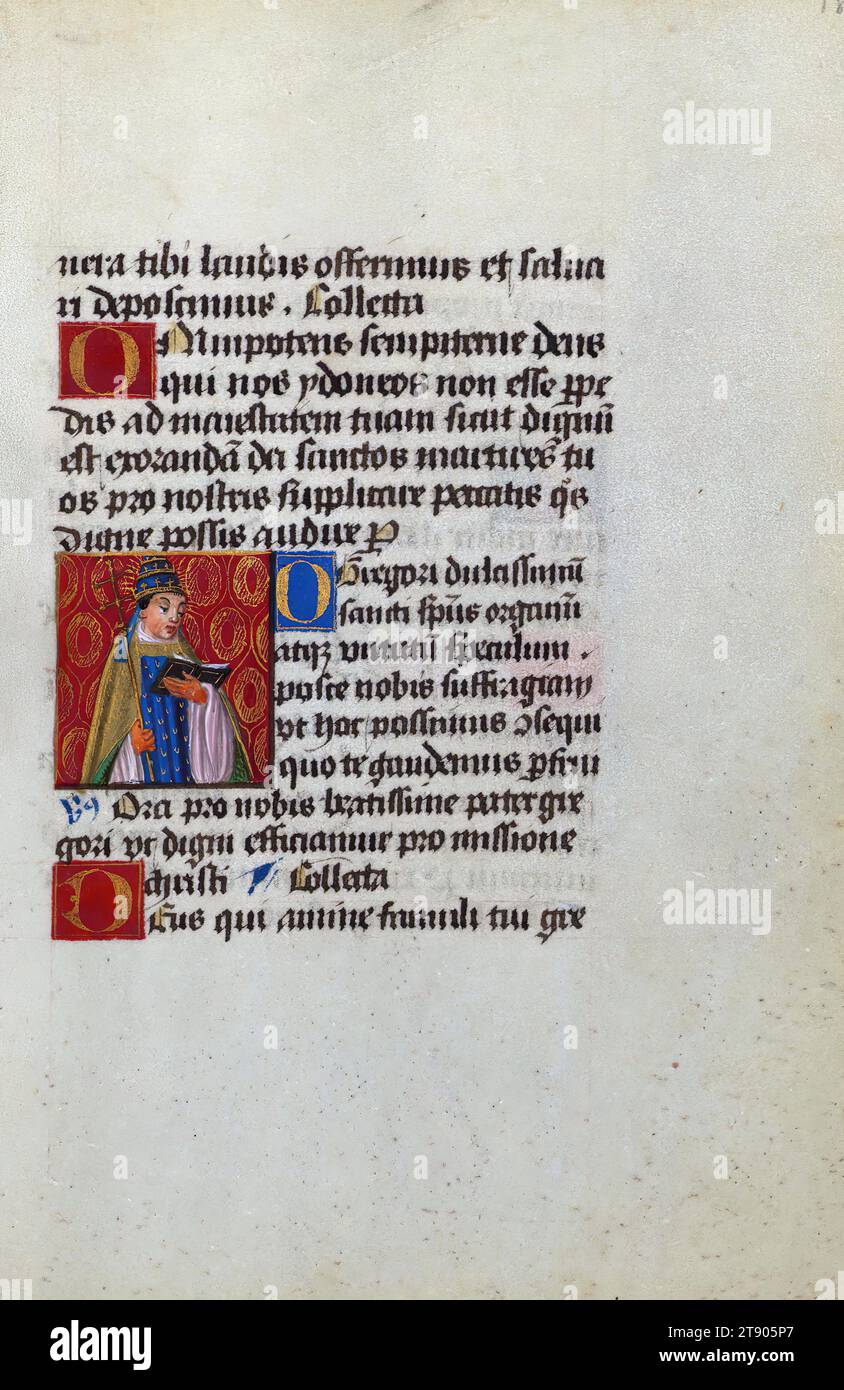 nera tibi laudis offerimus et salua
ri deposcimus. Collecta
OMnipotens sempiterne deus
qui nos ydoneos non esse ppe
dis ad maiestatem tuam sicut dignū
est exorandā da sanctos martires tu
os pro nostris supplicare peccatis q̄s
digne possis audire p
O Gregori dulcissimū
sancti sp̄us organum
atqz virtutū speculum.
posce nobis suffragiam
vt hoc possimus ɔsequi
quo te gaudemus pfrui
Ora pro nobis beatissime pater gre
gori vt digni efficiamur pro missione
christi Collecta
DEus qui anime famuli tui gre
alamy
alamy
alamy
Image ID: 2T905P7
www.alamy.com